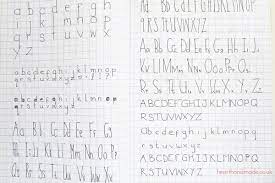 a b c d e f g h
i j k l m n o p
q r s t u v w x
y z
a b c d e f g h i j k l m n o p
q r s t u v w x y z
a b c d e f g h i j k l m n o p
q r s t u v w x y z
Aa Bb Cc Dd Ee Ff
Gg Hh Ii Jj Kk Ll
Mm Nn Oo Pp Qq Rr
ABCDEFGHIJKLMNOP
QRSTUVWXYZ
Aa Bb Cc Dd Ee Ff Gg Hh Ii Jj
Kk Ll Mm Nn Oo Pp Qq Rr Ss
Tt Uu Vv Ww Xx Yy Zz
ABCDEFGHIJKLMNOP
QRSTUVWXYZ
abcdefghijklmnop
qrstuvwxyz
ABCDEFGHIJKLMNOP
QRSTUVWXYZ